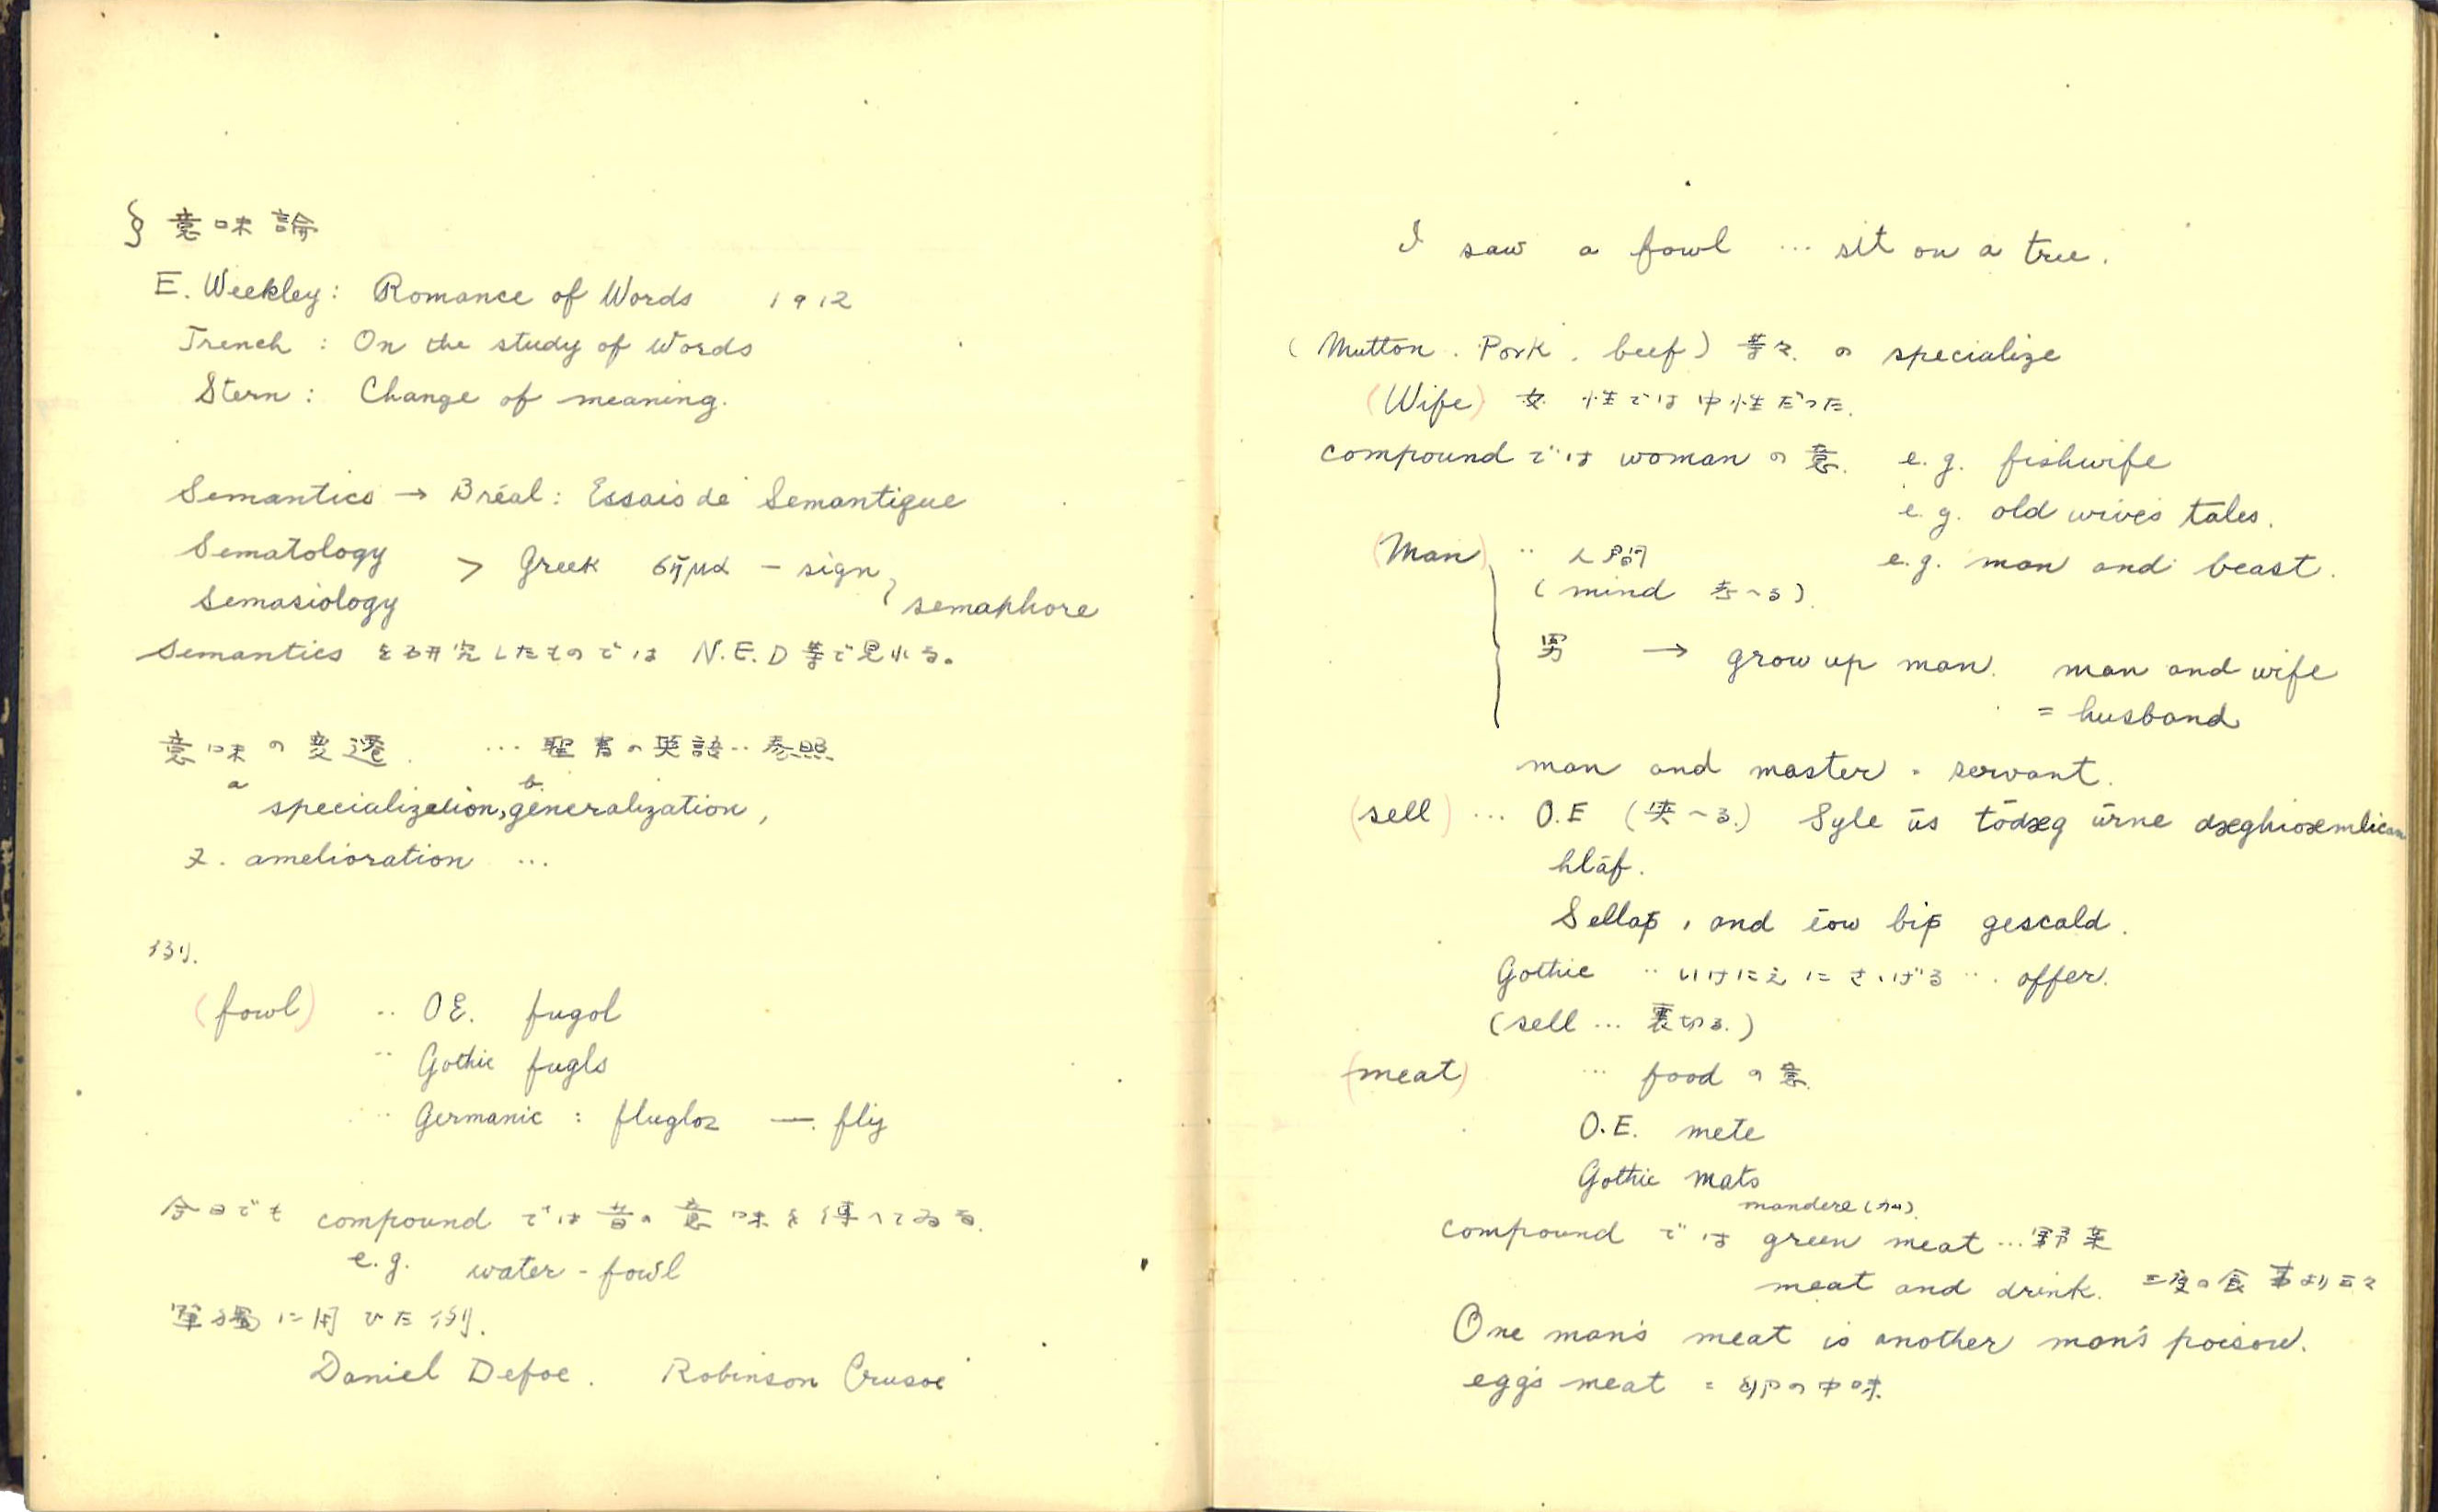 § 意味論
E. Weekley: Romance of Words 1912
Trench : On the study of Words
Stern : Change of meaning.
Semantics → Bréal : Essais de Semantique
Sematology
> Greek σῆμα - sign, semaphore
Semasiology
Semantics を研究したものでは N.E.D 等で見れる。
意味の変遷. … 聖書の英語‥参照
a b
specialization, generalization,
amelioration …
例.
(fowl) ‥ OE. fugol
‥ Gothic fugls
‥ Germanic : flugloz — fly
今日でも compound では昔の意味を傳へてゐる.
e.g. water-fowl
單獨に用ひた例.
Daniel Defoe. Robinson Crusoe
I saw a fowl … sit on a tree.
(Mutton. Pork. beef) 等々. の specialize
(Wife) 女 性では中性だった.
compound では woman の意. e.g. fishwife
e.g. old wives tales.
(Man) ‥ 人間 e.g. man and beast.
(mind 考へる).
男 → grow up man. man and wife
= husband
man and master = servant.
(sell) … O.E (與へる.) Syle ūs tōdæg ūrne
hlāf.
Sellaþ, and ēow biþ gescald.
Gothic ‥ いけにえにさゝげる … offer.
(sell … 裏切る.)
(meat) … food の意.
O.E. mete
Gothic mats
mandere (カム).
compound では green meat … 野菜
meat and drink. 三度の食事より云々
One man's meat is another man's poison.
egg's meat = 卵の中味.